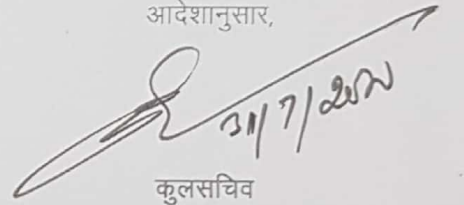 आदेशानुसार,
31/7/2020
कुलसचिव